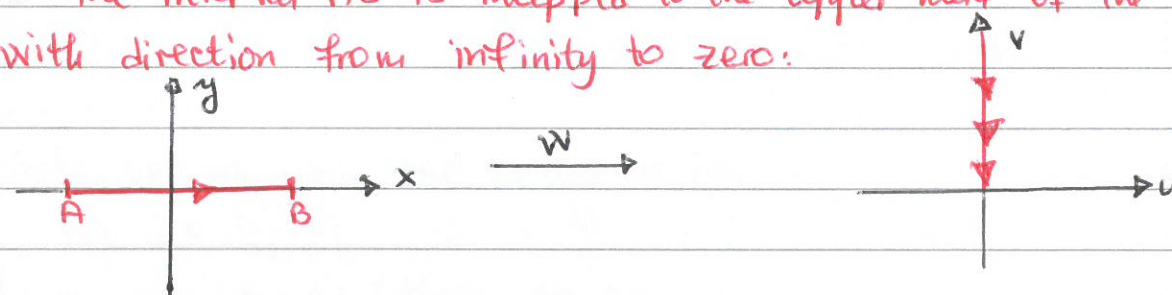 with direction from infinity to zero:
y
V
W
x
u
A
B